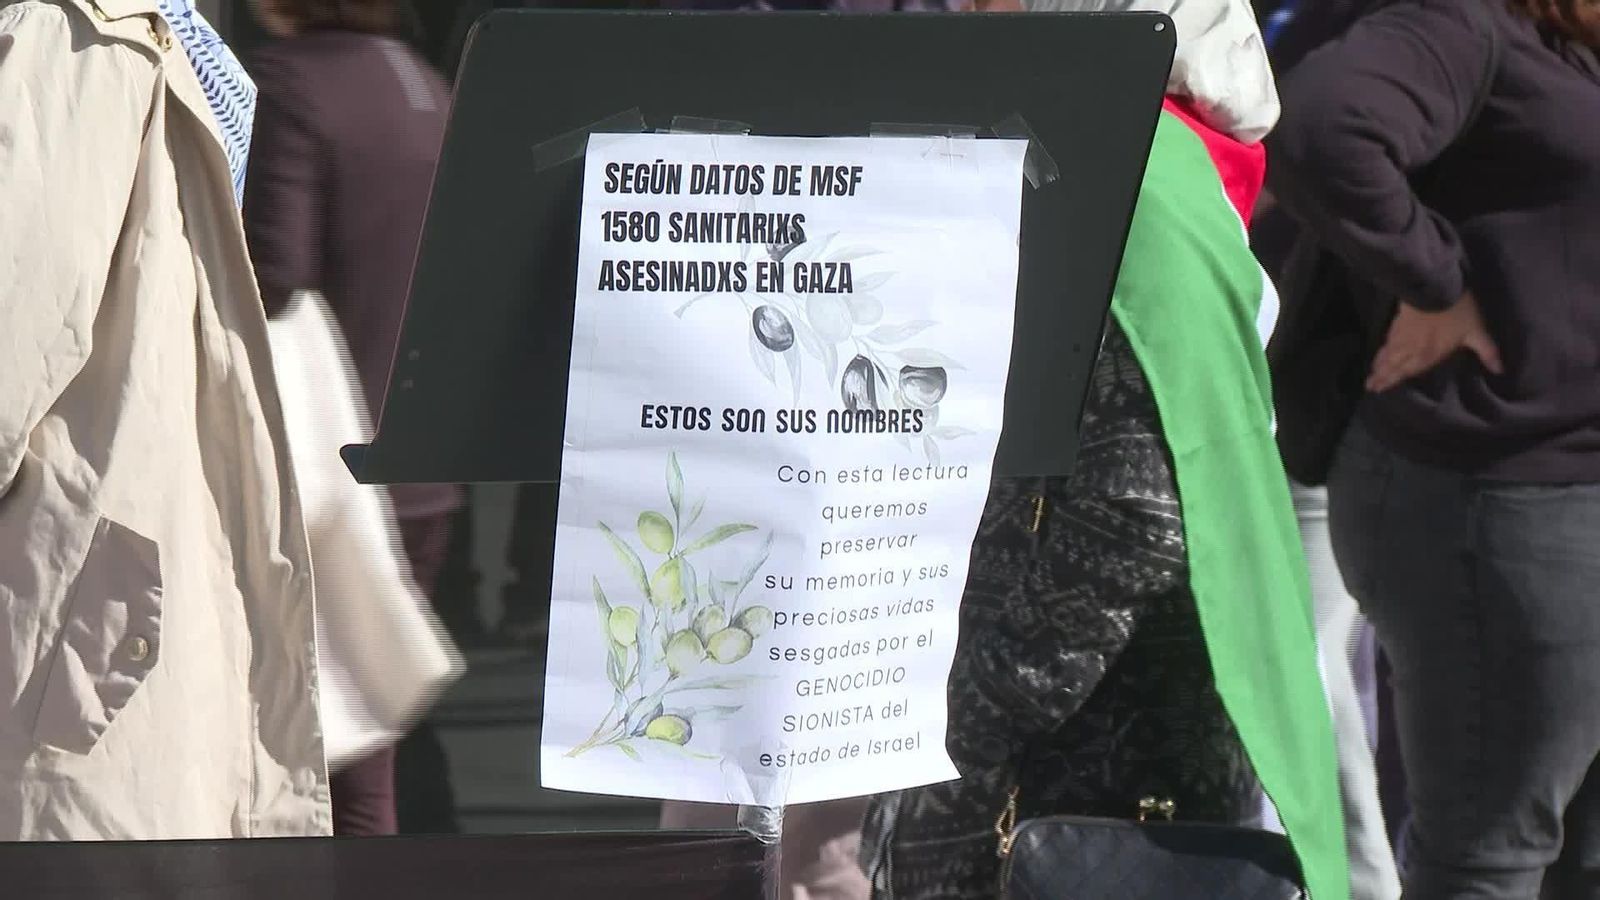 SEGÚN DATOS DE MSF
1580 SANITARIXS
ASESINADXS EN GAZA
ESTOS SON SUS NOMBRES
Con esta lectura
queremos
preservar
su memoria y sus
preciosas vidas
sesgadas por el
GENOCIDIO
SIONISTA del
estado de Israel